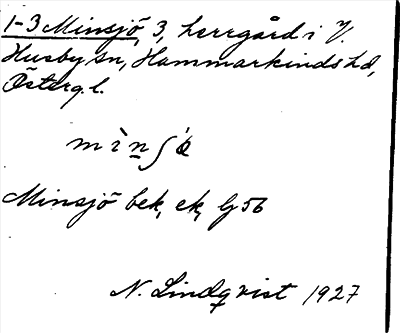 1-3 Minsjö, 3, herrgård i V.
Husby sn, Hammarkinds hd,
Österg. l.
mìnʃö
Minsjö bek, ek, Gj 56
N. Lindqvist 1927